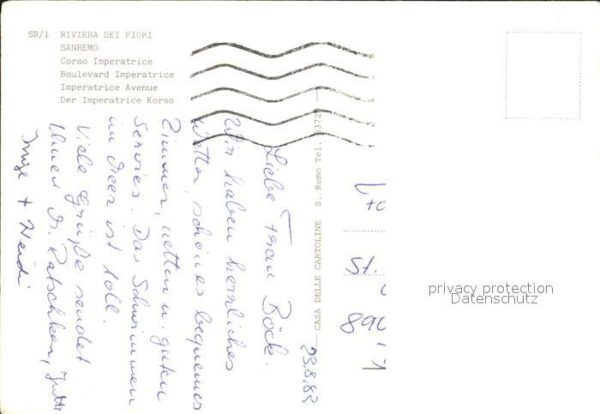 SR/1 RIVIERA DEI FIORI
SANREMO
Corso Imperatrice
Boulevard Imperatrice
Imperatrice Avenue
Der Imperatrice Korso
CASA DELLE CARTOLINE S. Remo Tel. 83729
23.8.83
Liebe Frau Böck.
Wir haben herrliches
Wetter, schönes bequemes
Zimmer, netten u. guten
Servies. Das Schwimmen
im Meer ist toll.
Viele Grüße sendet
Ihnen
Inge + Heidi
St.
890
privacy protection
Datenschutz